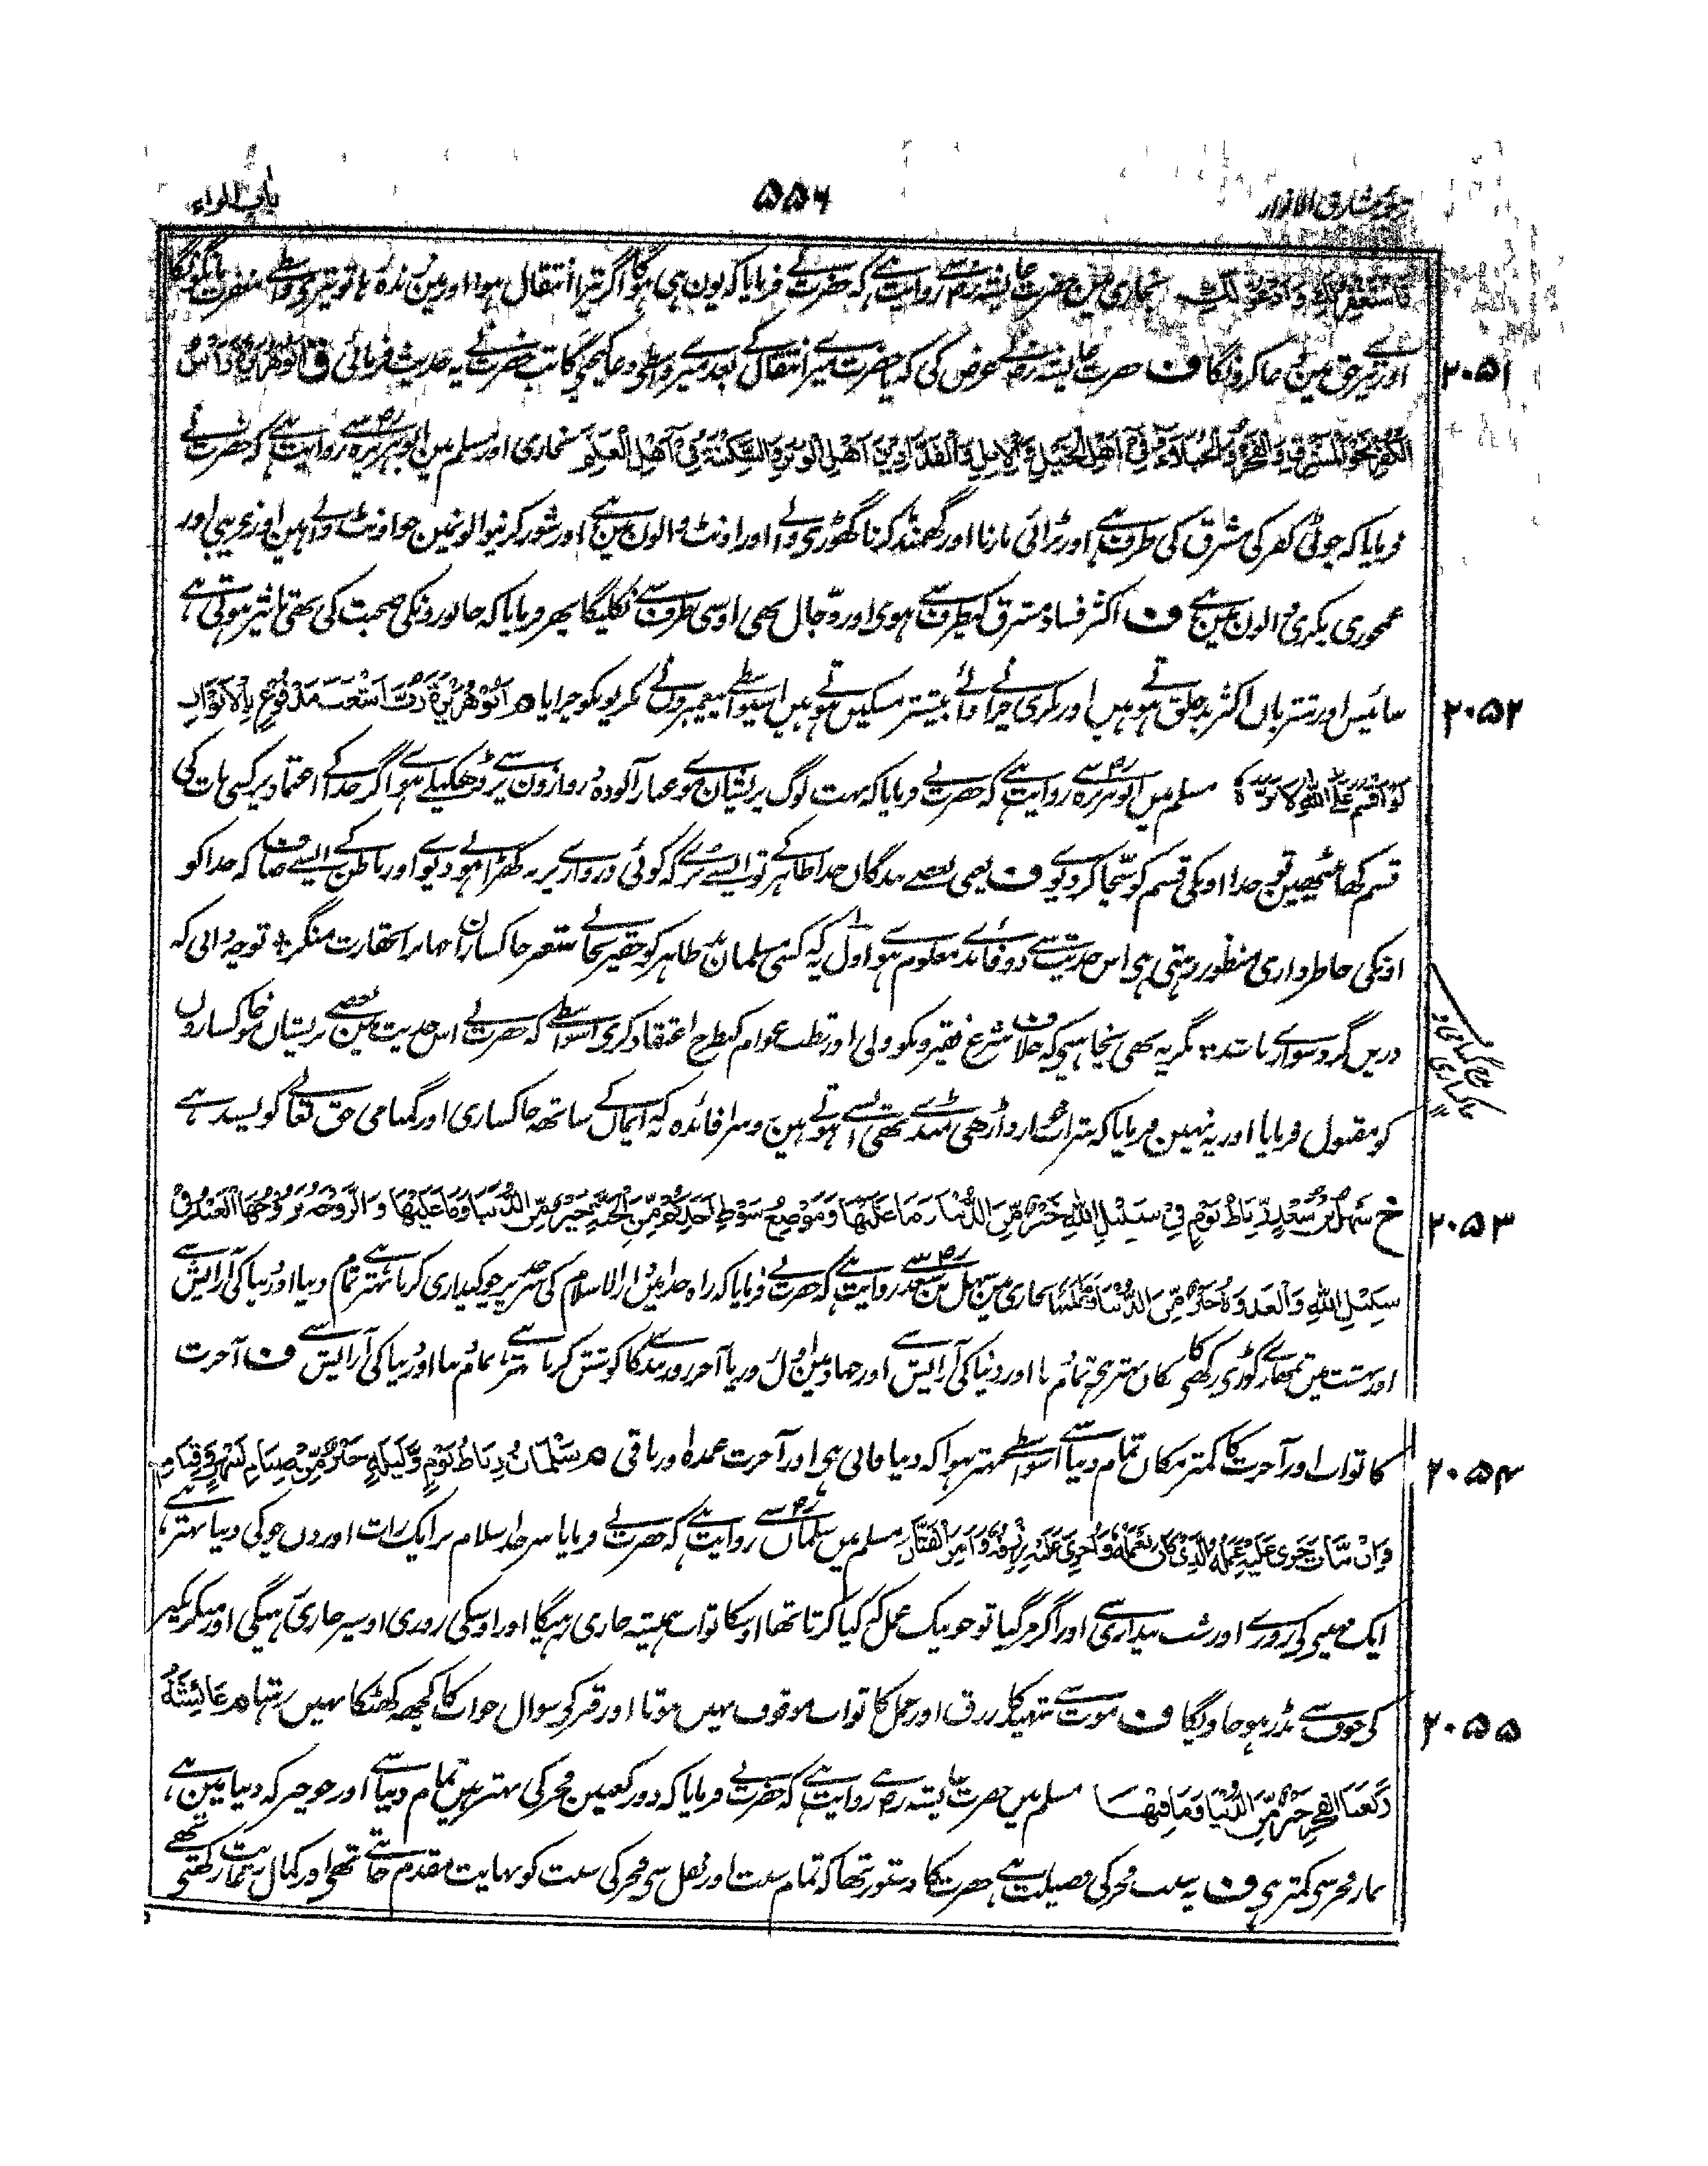 ترجمہ مشارق الانوار ۵۵۶ باب الراء
فَاَسْتَغْفِرُ لَكِ وَاَدْعُوْ لَكِ بخاری مین حضرت عایشہ رضہ سے روایت ہے کہ حضرت نے فرمایا کہ یون ہی ہوگا اگر تیرا انتقال ہوا اور مین زندہ رہا تو تیری واسطے مغفرت مانگونگا
۲۰۵۱ اور تیرے حق مین دعا کرونگا ف حضرت عایشہ رضہ نے عرض کی کہ یا حضرت میرے انتقال کے بعد میرے واسطے دعا کیجیے گا تب حضرت نے یہ حدیث فرمائی ق اَبُوْهُرَيْرَةَ رَاْسُ
الْكُفْرِ نَحْوَ الْمَشْرِقِ وَالْفَخْرُ وَالْخُيَلَاءُ فِيْ اَهْلِ الْخَيْلِ وَالْاِبِلِ وَالْفَدَّادِيْنَ اَهْلِ الْوَبَرِ وَالسَّكِيْنَةُ فِيْ اَهْلِ الْغَنَمِ بخاری اور مسلم مین ابوہریرہ رضہ سے روایت ہے کہ حضرت نے
فرمایا کہ چوٹی کفر کی مشرق کی طرف ہے اور بڑائی مارنا اور گھمنڈ کرنا گھوڑی والے اور اونٹ والون مین ہے اور شور کرنیوالونمین جو اونٹ والے ہین اور غریبی اور
عجزی بکری والون مین ہے ف اکثر فساد مشرق کیطرف سے ہوی اور دجال بھی اوسی طرف سے نکلیگا پھر فرمایا کہ جانورونکی صحبت کی بھی تاثیر ہوتی ہے
۲۰۵۲ سائیس اور شتربان اکثر بدخلق ہوتے ہیں اور بکری چرانے والے بیشتر مسکین ہوتے ہیں اسیواسطے پیغمبرونے بکریونکو چرایا م اَبُوْهُرَيْرَةَ رُبَّ اَشْعَثَ مَدْفُوْعٍ بِالْاَبْوَابِ
لَوْ اَقْسَمَ عَلَى اللّٰهِ لَاَبَرَّهٗ مسلم میں ابوہریرہ رضہ سے روایت ہے کہ حضرت نے فرمایا کہ بہت لوگ پریشان مو غبار آلودہ دروازون پر سے ڈھکیلے ہوے اگر خدا کے اعتماد پر کسی بات کی
قسم کھا بیٹھین تو خدا اونکی قسم کو سچا کر دیوے ف یعنی بعضے بندگان خدا ظاہر تو ایسے بُرے کہ کوئی دروازے پر نہ کھڑا ہونے دیوے اور باطن کے ایسے صاف کہ خدا کو
اونکی خاطر داری منظور رہتی ہی اس حدیث سے دو فائدے معلوم ہوے اول یہ کہ کسی مسلمان بد ظاہر کو حقیر نجانے شعر خاکساران جہانرا بحقارت منگر ؞ تو چہ دانی کہ
دریں گرد سوارے باشد ؞ مگر یہ بھی نچاہیے کہ خلاف شرع فقیرونکو ولی اور قطب عوام کیطرح اعتقاد کری اسواسطے کہ حضرت نے اس حدیث مین بعضے پریشان مو خاکساروں
کو مقبول فرمایا اور یہ نہین فرمایا کہ داڑھی منڈے بھی ایسے ہوتے ہین دوسرا فائدہ یہ کہ ایمان کے ساتھ خاکساری اور گمنامی حق تعالٰے کو پسند ہے
۲۰۵۳ خ سَهْلُ بْنُ سَعْدٍ رِبَاطُ يَوْمٍ فِيْ سَبِيْلِ اللّٰهِ خَيْرٌ مِّنَ الدُّنْيَا وَمَا عَلَيْهَا وَمَوْضِعُ سَوْطِ اَحَدِكُمْ مِّنَ الْجَنَّةِ خَيْرٌ مِّنَ الدُّنْيَا وَمَا عَلَيْهَا وَالرَّوْحَةُ يَرُوْحُهَا الْعَبْدُ فِيْ
سَبِيْلِ اللّٰهِ وَالْغَدْوَةُ خَيْرٌ مِّنَ الدُّنْيَا وَمَا عَلَيْهَا بخاری مین سہل بن سعد رضہ سے روایت ہے کہ حضرت نے فرمایا کہ راہ خدا مین دار الاسلام کی سرحد پر چوکیداری کرنا بہتر ہے تمام دنیا اور دنیا کی آرایش سے
اور بہشت میں تمھارے کوڑی رکھنی کا مکان بہتر ہی تمام دنیا اور دنیا کی آرایش سے اور جہاد مین اول روز یا آخر روز بندیکا کوشش کرنا بہتر ہے تمام دنیا اور دنیا کی آرایش سے ف آخرت
۲۰۵۴ کا ثواب اور آخرت کا کمتر مکان تمام دنیا سے اسواسطے بہتر ہوا کہ دنیا فانی ہی اور آخرت عمدہ اور باقی م سَلْمَانُ رِبَاطُ يَوْمٍ وَّلَيْلَةٍ خَيْرٌ مِّنْ صِيَامِ شَهْرٍ وَّقِيَامِهٖ
وَاِنْ مَّاتَ جَرٰى عَلَيْهِ عَمَلُهُ الَّذِيْ كَانَ يَعْمَلُهٗ وَاُجْرِيَ عَلَيْهِ رِزْقُهٗ وَاَمِنَ الْفَتَّانَ مسلم میں سلمان رضہ سے روایت ہے کہ حضرت نے فرمایا سرحد اسلام پر ایک رات اور دن چوکی دینا بہتر ہے
ایک مہینی کی روزے اور شب بیداری سے اور اگر مر گیا تو جو نیک عمل کہ کیا کرتا تھا اوسکا ثواب ہمیشہ جاری رہیگا اور اوسکی روزی اوسپر جاری رہیگی اور منکر نکیر
۲۰۵۵ کی خوف سے نڈر ہو جاویگا ف موت سے شہید کا رزق اور عمل کا ثواب موقوف نہیں ہوتا اور قبر کی سوال جواب کا کچھ کھٹکا نہیں رہتا م عَائِشَةُ
رَكْعَتَا الْفَجْرِ خَيْرٌ مِّنَ الدُّنْيَا وَمَا فِيْهَا مسلم میں حضرت عایشہ رضہ سے روایت ہے کہ حضرت نے فرمایا کہ دو رکعتین فجر کی بہتر ہیں تمام دنیا سے اور جو چیز کہ دنیا مین ہے
نماز فجر سی کمتر ہی ف یہ سنت فجر کی فضیلت ہے حضرت کا دستور تھا کہ تمام سنت اور نفل سی فجر کی سنت کو نہایت مقدم جانتے تھے اور کمال رکھتی تھے